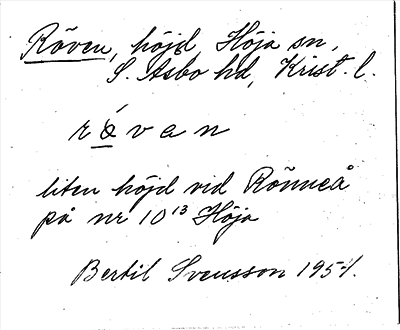 Röven, höjd, Höja sn,
S. Åsbo hd, Krist. l.
rǿvan
liten höjd vid Rönneå
på nr 10¹³ Höja
Bertil Svensson 1954.